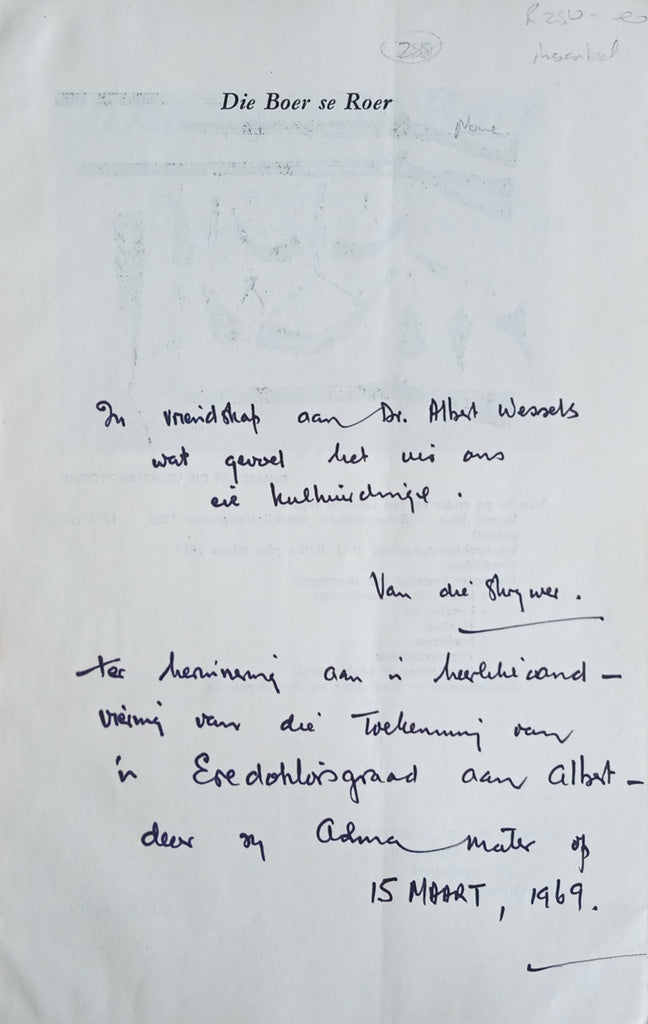 R250-00
258
Die Boer se Roer
In vriendskap aan Dr. Albert Wessels
wat gevoel het vir ons
eie kultuurdinge.
Van die Skrywer.
ter herinnering aan 'n heerlike aand –
viering van die Toekenning van
'n Eredoktorsgraad aan Albert –
deur sy Alma mater op
15 MAART, 1969.